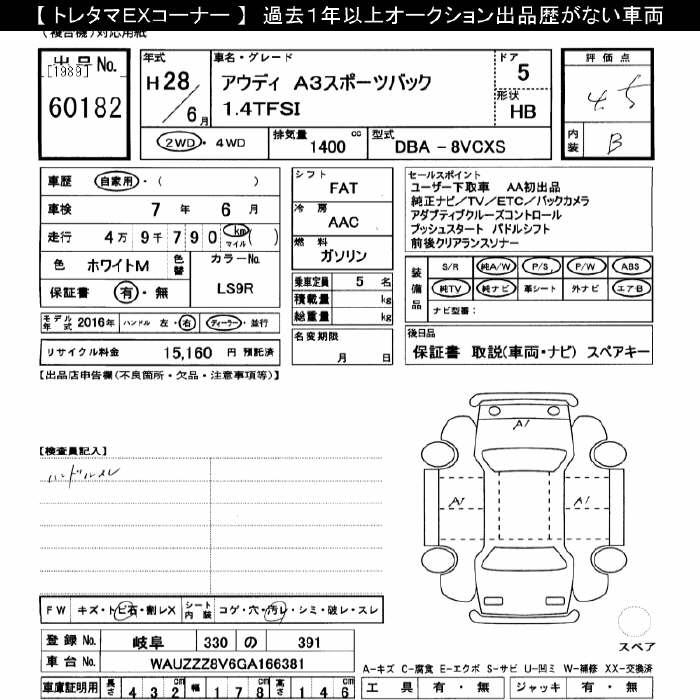 【 トレタマEXコーナー 】 過去１年以上オークション出品歴がない車両
(複合機)対応用紙
出品No.
[1989]
60182
年式
H28
／6月
車名・グレード
アウディ A3スポーツバック
1.4TFSI
ドア
5
形状
HB
2WD・4WD
排気量 1400 cc
型式 DBA － 8VCXS
評価点
4.5
内装 B
車歴 自家用・( )
車検 7年 6月
走行 4万9千790 km マイル ( )
色 ホワイトM 色替 カラーNo.
保証書 有・無 LS9R
モデル年式 2016年 ハンドル 左・右 ディーラー・並行
リサイクル料金 15,160 円 預託済
シフト
FAT
冷房
AAC
燃料
ガソリン
乗車定員 5 名
積載量 kg
総重量 kg
名変期限
月 日
セールスポイント
ユーザー下取車 AA初出品
純正ナビ／TV／ETC／バックカメラ
アダプティブクルーズコントロール
プッシュスタート パドルシフト
前後クリアランスソナー
装備品
S/R 純A/W P/S P/W ABS
純TV 純ナビ 革シート 外ナビ エアB
ナビ型番：
後日品
保証書 取説(車両・ナビ) スペアキー
【出品店申告欄(不良箇所・欠品・注意事項等)】
【検査員記入】
ハンドルスレ
A1
A1
A1
FW キズ・トビ石・割レX シート内装 コゲ・穴・汚レ・シミ・破レ・スレ
登録No. 岐阜 330 の 391
車台No. WAUZZZ8V6GA166381
車庫証明用 長さ 432cm 幅 178cm 高さ 146cm
スペア
A-キズ C-腐食 E-エクボ S-サビ U-凹ミ W-補修 XX-交換済
工具 有・無 ジャッキ 有・無